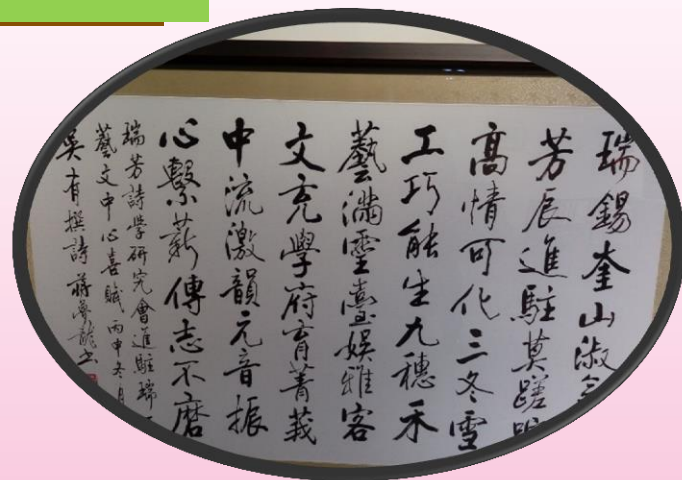 瑞錫奎山淑
芳辰進駐莫蹉
高情可化三冬雪
工巧能生九穗禾
藝滿靈臺娛雅客
文充學府育菁莪
中流激韻元音振
心繫薪傳志不磨
瑞芳詩學研究會進駐瑞
藝文中心喜賦 丙申冬月
吳有撰詩 蔣夢龍書